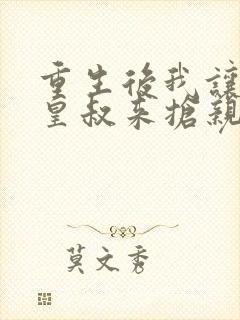 重生後我讓
皇叔来搶親
莫文秀